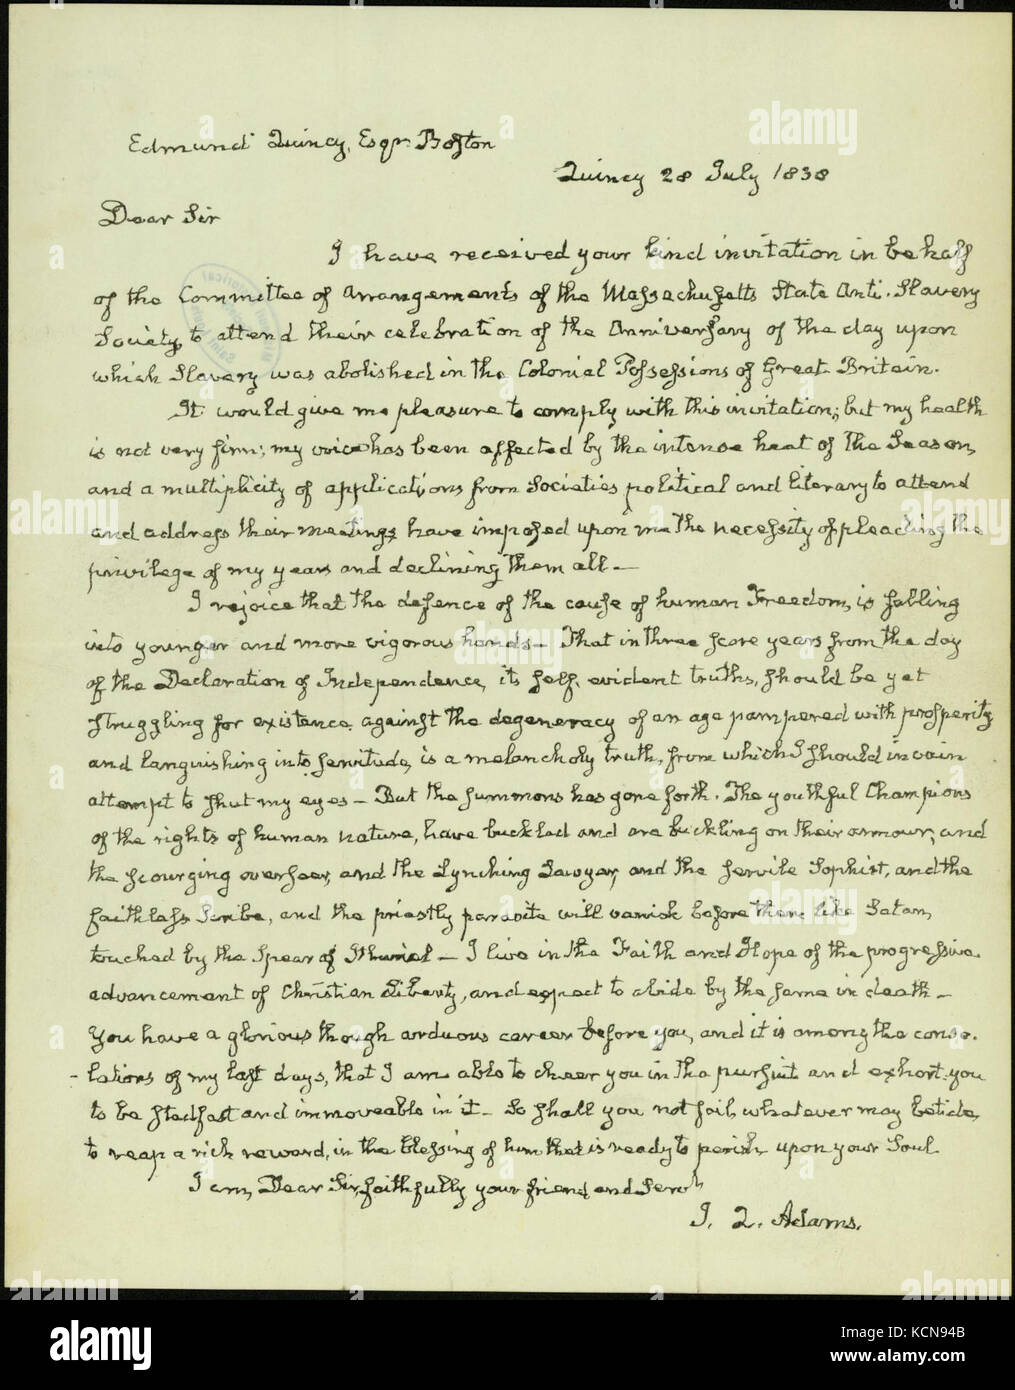 Edmund Quincy, Esqr. Boston
Quincy 28 July 1838
Dear Sir
I have received your kind invitation in behalf
of the Committee of Arrangements of the Massachusetts State Anti-Slavery
Society, to attend their celebration of the Anniversary of the day upon
which Slavery was abolished in the Colonial Possessions of Great Britain.
It would give me pleasure to comply with this invitation; but my health
is not very firm; my voice has been affected by the intense heat of the Season,
and a multiplicity of applications from Societies political and literary to attend
and address their meetings have imposed upon me the necessity of pleading the
privilege of my years and declining them all—
I rejoice that the defence of the cause of human Freedom, is falling
into younger and more vigorous hands— That in three score years from the day
of the Declaration of Independence, its self-evident truths, should be yet
struggling for existence against the degeneracy of an age pampered with prosperity
and languishing into servitude, is a melancholy truth, from which I should in vain
attempt to shut my eyes— But the summons has gone forth. The youthful Champions
of the rights of human nature, have buckled and are buckling on their armour, and
the scourging overseer, and the Lynching Lawyer, and the servile Sophist, and the
faithless Scribe, and the priestly parasite will vanish before them like Satan,
touched by the Spear of Ithuriel— I live in the Faith and Hope of the progressive
advancement of Christian Liberty, and expect to abide by the same in death—
You have a glorious though arduous career before you, and it is among the conso-
-lations of my last days, that I am able to cheer you in the pursuit and exhort you
to be stedfast and immoveable in it— So shall you not fail, whatever may betide,
to reap a rich reward, in the blessing of him that is ready to perish, upon your Soul
I am, Dear Sir, faithfully your friend and Servt
J. Q. Adams.
alamy
a
KCN94B
www.alamy.com